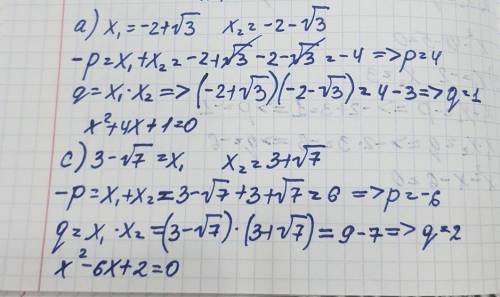 a) x₁=-2+√3 x₂=-2-√3
-p=x₁+x₂=-2+√3-2-√3=-4=>p=4
q=x₁·x₂=>(-2+√3)(-2-√3)=4-3=>q=1
x²+4x+1=0
c) 3-√7=x₁ x₂=3+√7
-p=x₁+x₂=3-√7+3+√7=6 =>p=-6
q=x₁·x₂=(3-√7)·(3+√7)=9-7=>q=2
x²-6x+2=0